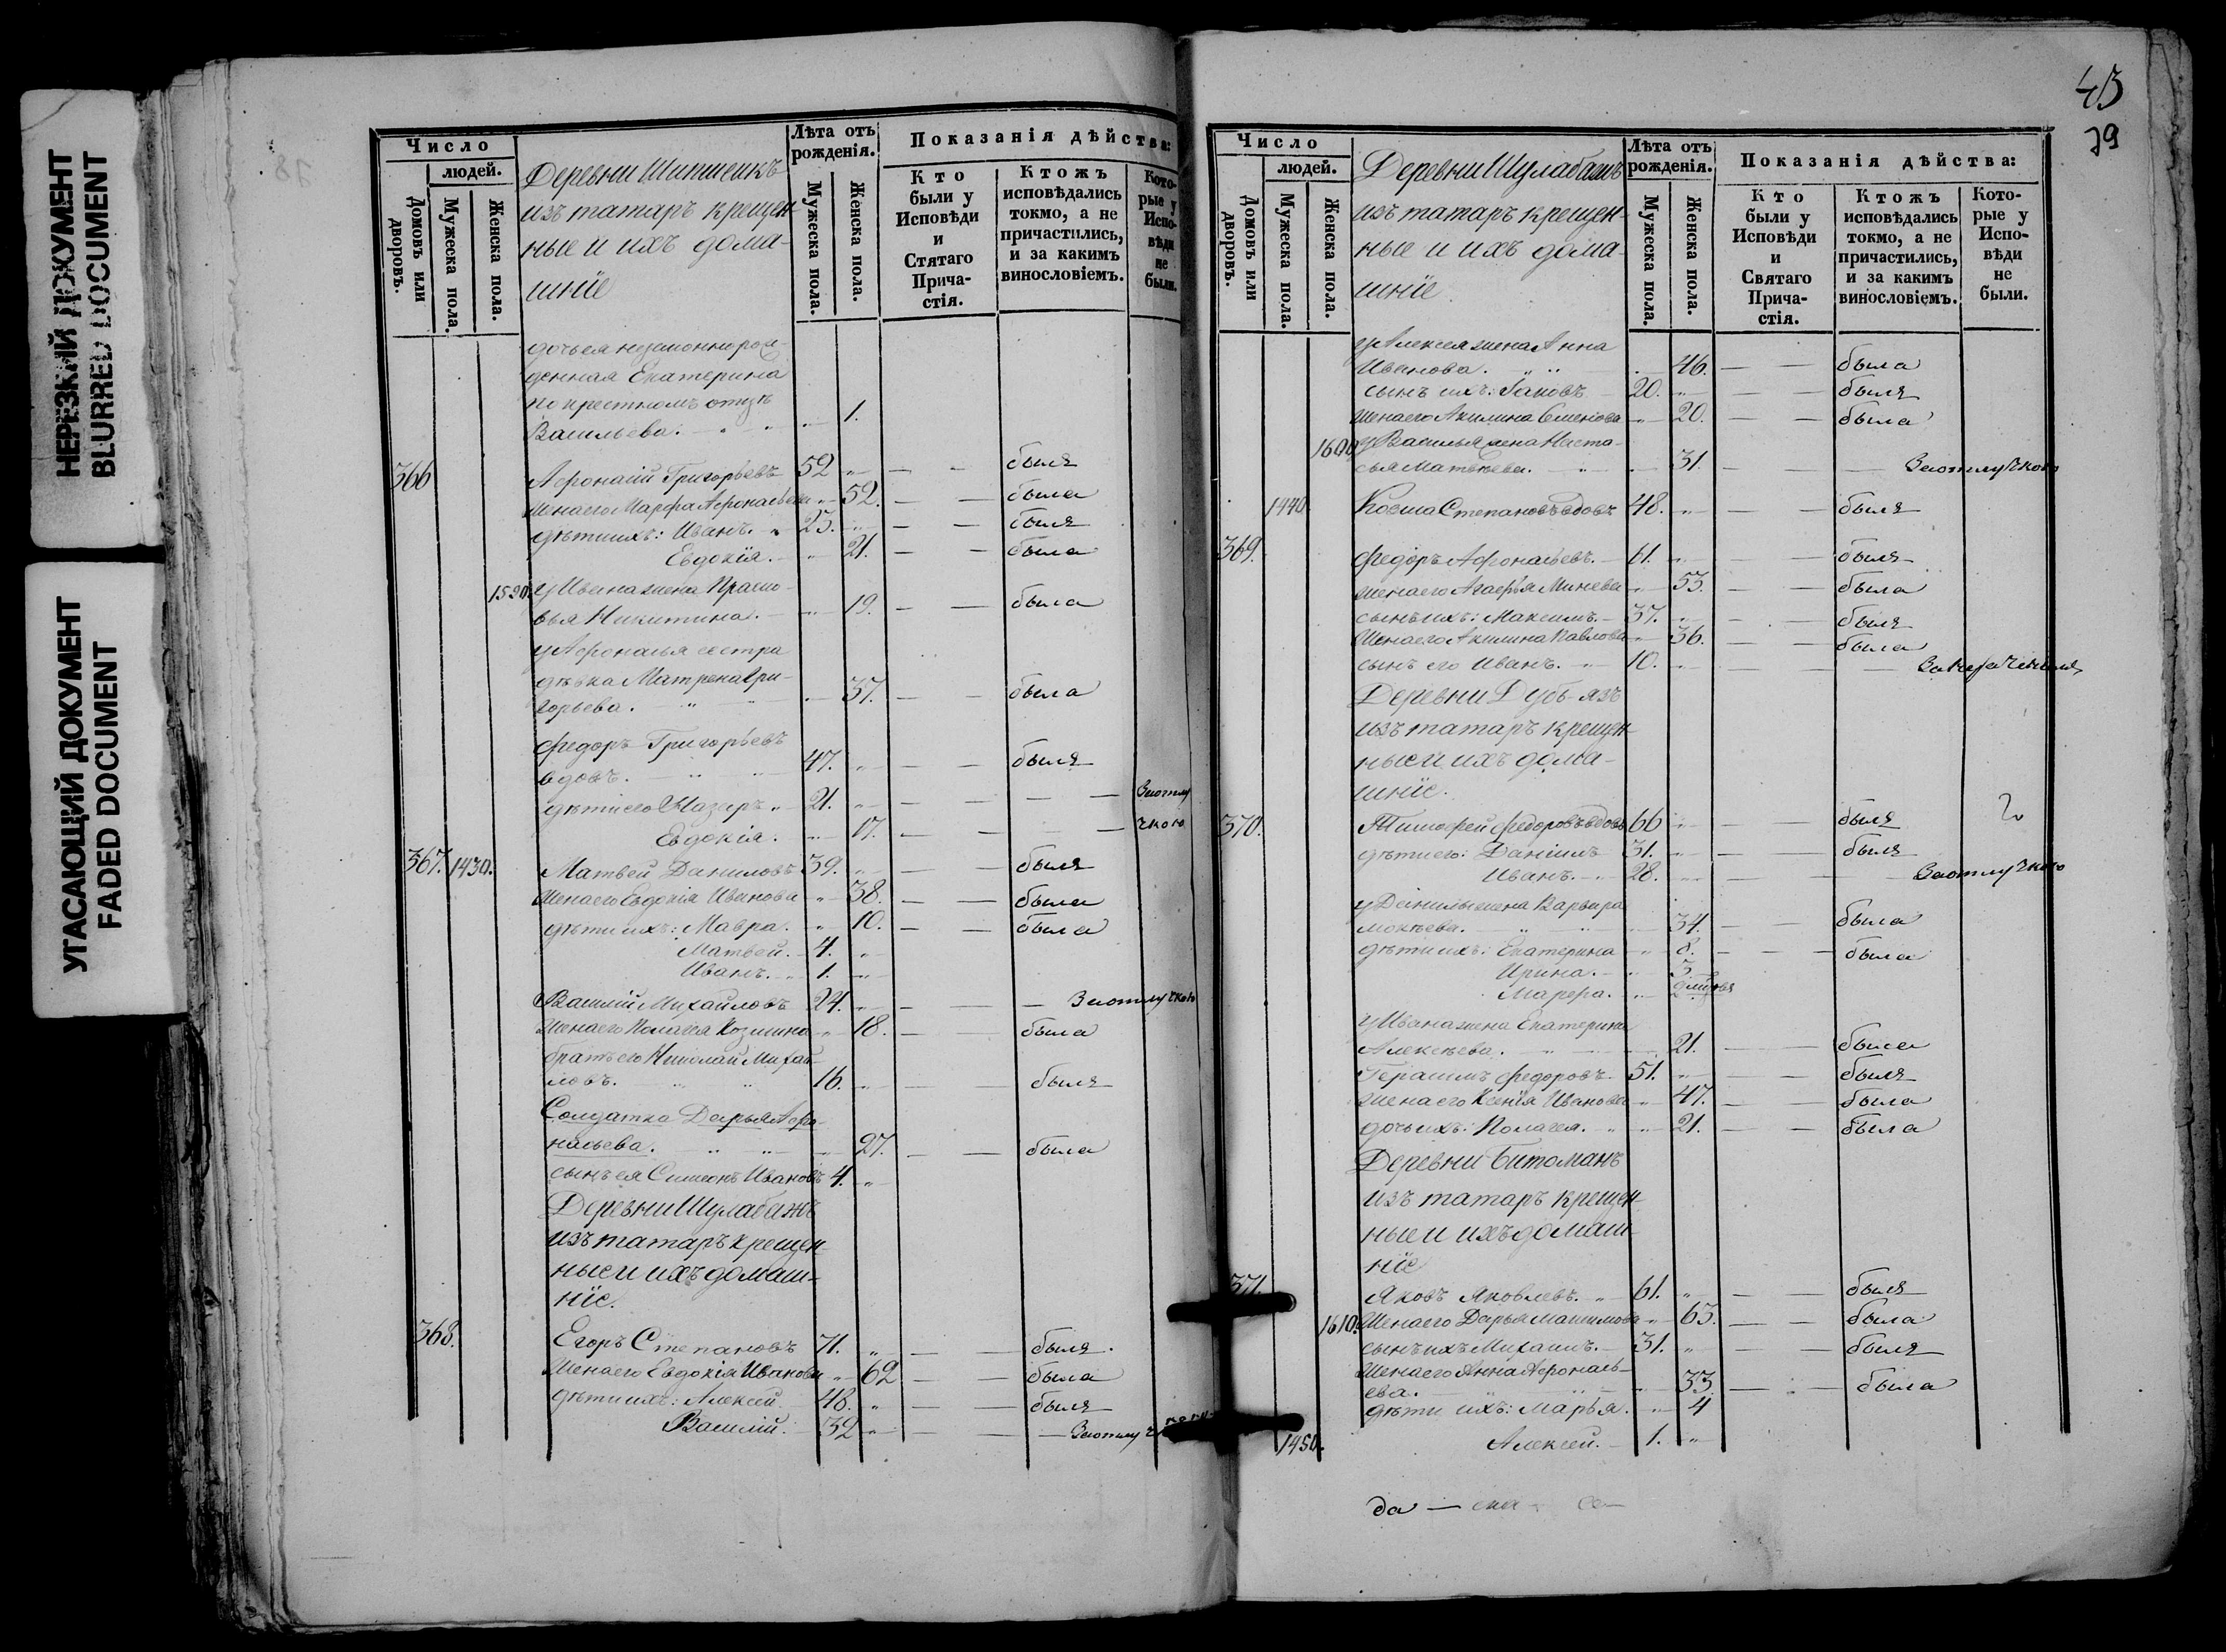 НЕРЕЗКИЙ ДОКУМЕНТ
BLURRED DOCUMENT
УГАСАЮЩИЙ ДОКУМЕНТ
FADED DOCUMENT
Число
людей.
Домовъ или дворовъ.
Мужеска пола.
Женска пола.
Деревни Шипшеикъ
изъ татаръ крещен-
ные и ихъ дома-
шніе
Лѣта отъ рожденія.
Мужеска пола.
Женска пола.
Показанія дѣйства:
Кто были у Исповѣди и Стятаго Прича-стія.
Ктожъ исповѣдались токмо, а не причастились, и за какимъ винословіемъ.
Кото-рые у Испо-вѣди не были.
дочь ея незаконнорож-
денная Екатерина
по крестномъ отцѣ
Васильева. 1.
366 Афонасій Григорьевъ 52 — — былъ
жена его Марфа Афонасьева 52. — — была
дѣти ихъ: Иванъ. 23. — — былъ
Евдокія. 21. — — была
1590. у Ивана жена Праско-
вья Никитина. 19. — — была
у Афонасья сестра
дѣвка Матрена Гри-
горьева. 37. — — была
Федоръ Григорьевъ
вдовъ. 47. — — былъ
дѣти его: Назаръ 21. — — — — За отлу
Евдокія. 17. — — — — чкою
367. 1430. Матвей Даниловъ 39. — — былъ
жена его Евдокія Иванова 38. — — была
дѣти ихъ: Мавра. 10. — — была
Матвей. 4.
Иванъ. 1.
Василій Михайловъ 24. — — — За отлучкою
жена его Пелагея Козмина 18. — — была
братъ его Николай Михай-
ловъ. 16. — былъ
Солдатка Дарья Афо-
насьева. 27. — — была
сынъ ея Симеонъ Ивановъ 4.
Деревни Шулабашъ
изъ татаръ крещен-
ные и ихъ домаш-
ніе.
368. Егоръ Степановъ 71. — — былъ.
жена его Евдокія Иванова 62 — — была
дѣти ихъ: Алексей 48. — — былъ
Василій. 32 — — — За отлучкою
43
79
Число
людей.
Домовъ или дворовъ.
Мужеска пола.
Женска пола.
Деревни Шулабашъ
изъ татаръ крещен-
ные и ихъ дома-
шніе
Лѣта отъ рожденія.
Мужеска пола.
Женска пола.
Показанія дѣйства:
Кто были у Исповѣди и Святаго Прича-стія.
Ктожъ исповѣдались токмо, а не причастились, и за какимъ винословіемъ.
Кото-рые у Испо-вѣди не были.
у Алексея жена Анна
Иванова. 46. — — была
сынъ ихъ: Іаковъ 20. — — былъ
жена его Акилина Семенова 20. — — была
1600 у Василья жена Наста-
сья Матвеева. 31. — — — За отлучкою
1440. Козма Степановъ вдовъ 48. — — былъ
369. Федоръ Афонасьевъ. 61. — былъ
жена его Агафья Минеева 53. — — была
сынъ ихъ: Максимъ. 37. — — былъ
жена его Акилина Павлова 36. — — была
сынъ его Иванъ. 10. — — —
Деревни Дубъ-язъ
изъ татаръ крещен-
ные и ихъ дома-
шніе.
370. Тимофей Федоровъ вдовъ 66 — — былъ
дѣти его: Даніилъ 31. — — былъ
Иванъ. 28. — — — За отлучкою
у Данилы жена Варвара
Мокѣева. 34. — — была
дѣти ихъ: Екатерина 8. — — — была
Ирина. 3
Марфа.
у Ивана жена Екатерина
Алексѣева. 21. — — была
Герасимъ Федоровъ. 51. — — былъ
жена его Ксенія Иванова 47. — — была
дочь ихъ: Пелагея. 21. — — была
Деревни Битоманъ
изъ татаръ крещен-
ные и ихъ домаш-
ніе
371. Яковъ Яковлевъ. 61. — — былъ
1610. жена его Дарья Максимова 63. — — была
сынъ ихъ Михаилъ. 31. — — былъ
жена его Анна Афонась-
ева. 33. — — была
дѣти ихъ: Марья. 4
1450. Алексей. 1.